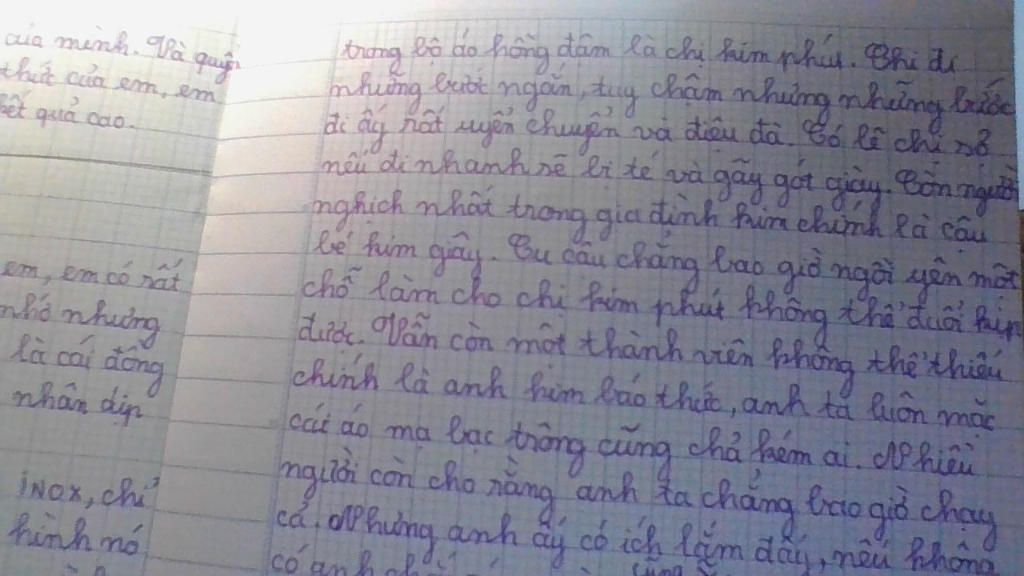 của mình. Và quyển
thức của em, em
kết quả cao.
em, em có rất
nhỏ nhưng
là cái đồng
nhân dịp
inox, chỉ
hình nó
trong bộ áo hồng đậm là chị kim phút. Chị đi
những bước ngắn, tuy chậm nhưng những bước
đi ấy rất uyển chuyển và điệu đà. Có lẽ chị sợ
nếu đi nhanh sẽ bị té và gãy gót giày. Còn người
nghịch nhất trong gia đình kim chính là cậu
bé kim giây. Cu cậu chẳng bao giờ ngồi yên một
chỗ làm cho chị kim phút không thể đuổi kịp
được. Vẫn còn một thành viên không thể thiếu
chính là anh kim báo thức, anh ta luôn mặc
cái áo mạ bạc trông cũng chả kém ai. Nhiều
người còn cho rằng anh ta chẳng bao giờ chạy
cả. Nhưng anh ấy có ích lắm đấy, nếu không
có anh